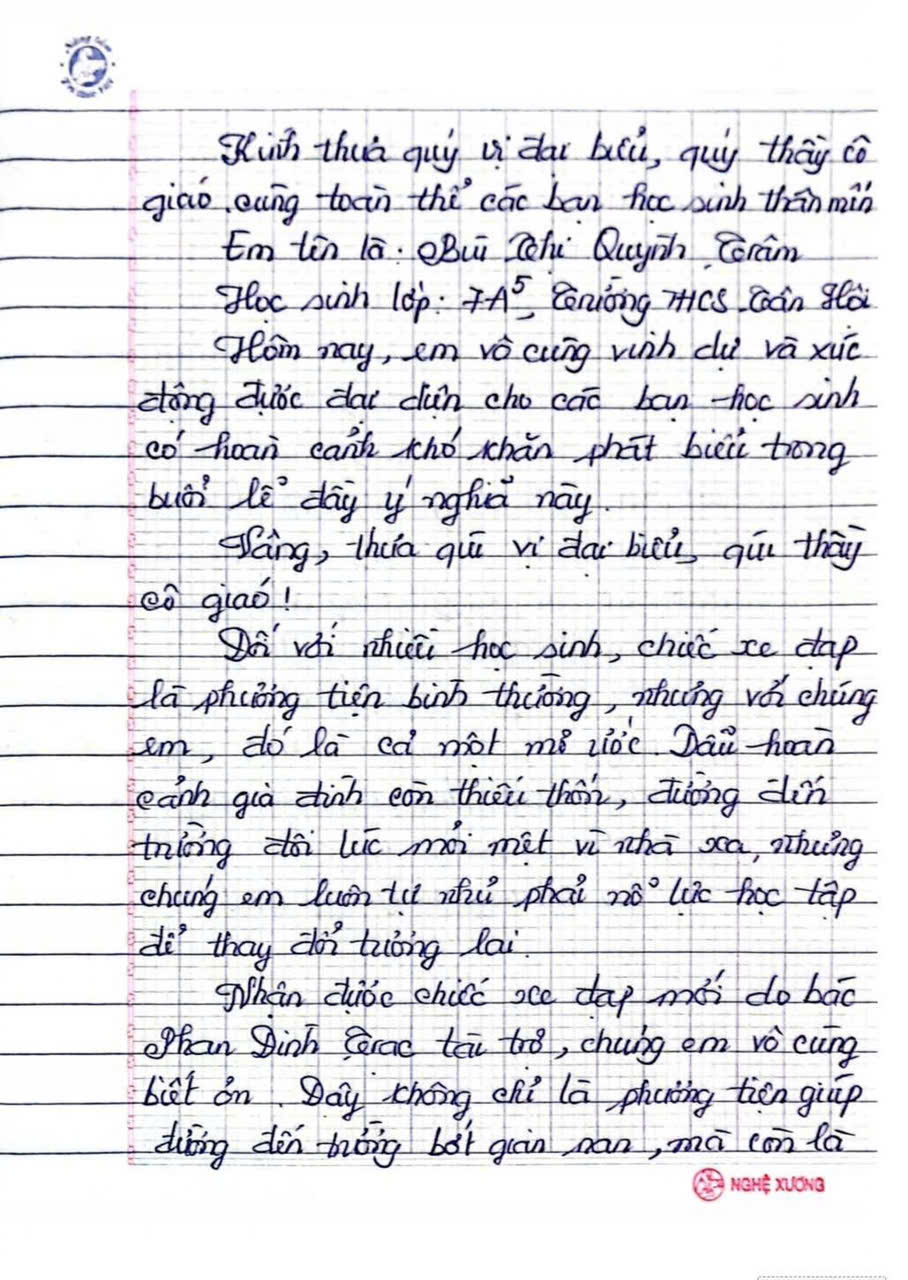 Kính thưa quý vị đại biểu, quý thầy cô
giáo cùng toàn thể các bạn học sinh thân mến
Em tên là: Bùi Thị Quỳnh Trâm
Học sinh lớp: 7A5, Trường THCS Tân Hội
Hôm nay, em vô cùng vinh dự và xúc
động được đại diện cho các bạn học sinh
có hoàn cảnh khó khăn phát biểu trong
buổi lễ đầy ý nghĩa này.
Vâng, thưa quí vị đại biểu, quí thầy
cô giáo!
Đối với nhiều học sinh, chiếc xe đạp
là phương tiện bình thường, nhưng với chúng
em, đó là cả một mơ ước. Dẫu hoàn
cảnh gia đình còn thiếu thốn, đường đến
trường đôi lúc mỏi mệt vì nhà xa, nhưng
chúng em luôn tự nhủ phải nổ lực học tập
để thay đổi tương lai.
Nhận được chiếc xe đạp mới do bác
Phan Đình Trạc tài trợ, chúng em vô cùng
biết ơn. Đây không chỉ là phương tiện giúp
đường đến trường bớt gian nan, mà còn là
NGHỆ XƯƠNG